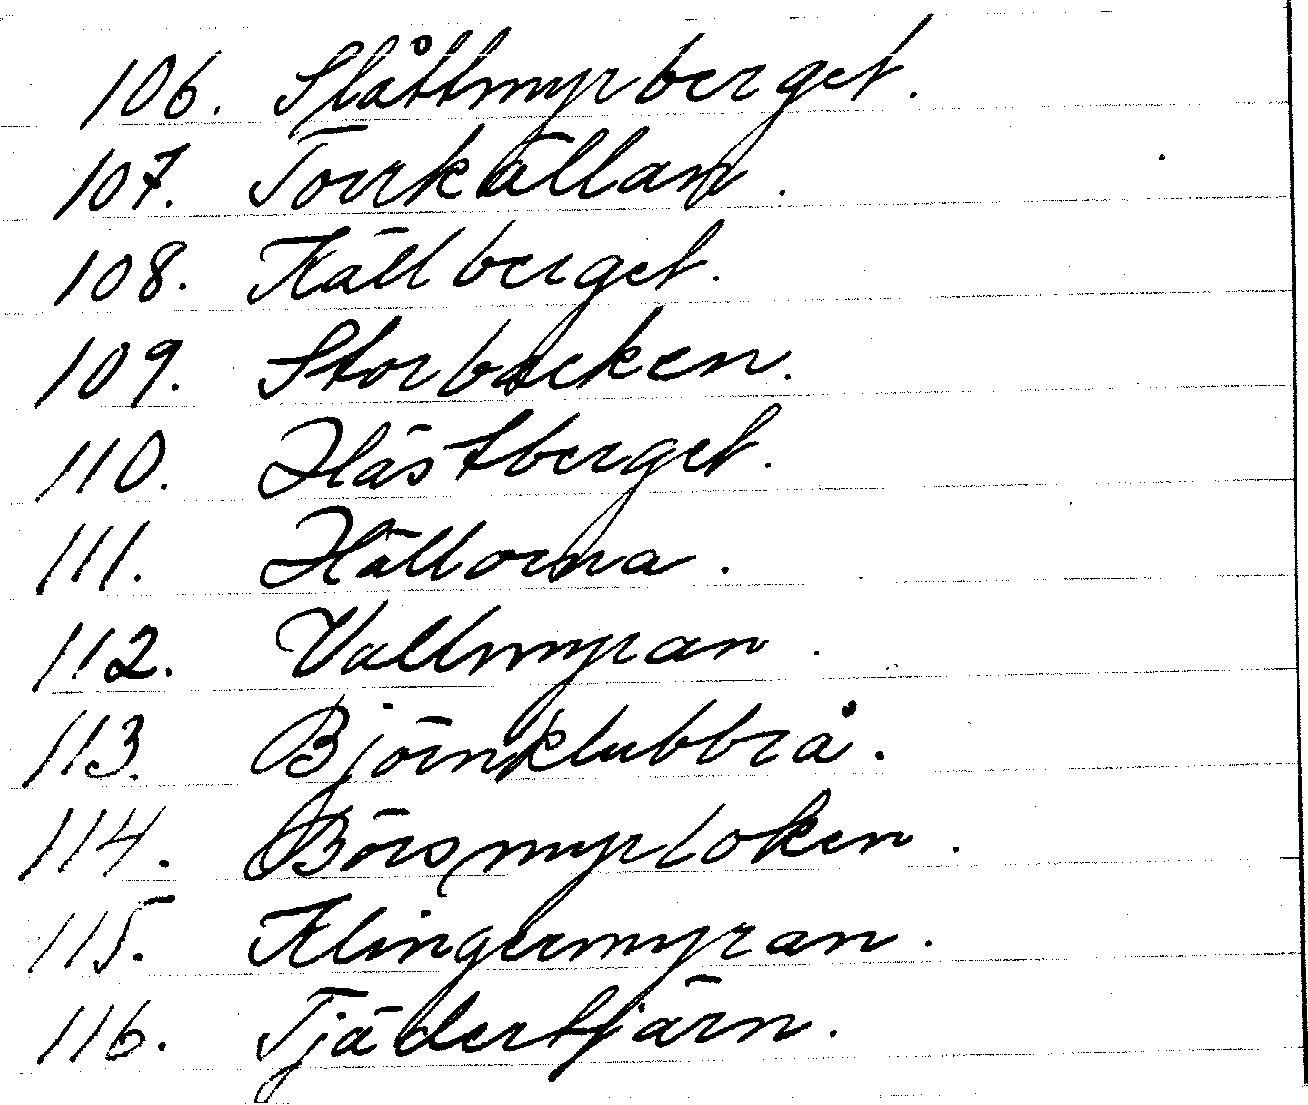 106. Slåttmyrberget.
107. Torrkällan.
108. Källberget.
109. Storbacken.
110. Hästberget.
111. Hällorna.
112. Vallmyran.
113. Björnklubbrå.
114. Börsmyrloken.
115. Klingermyran.
116. Tjädertjärn.